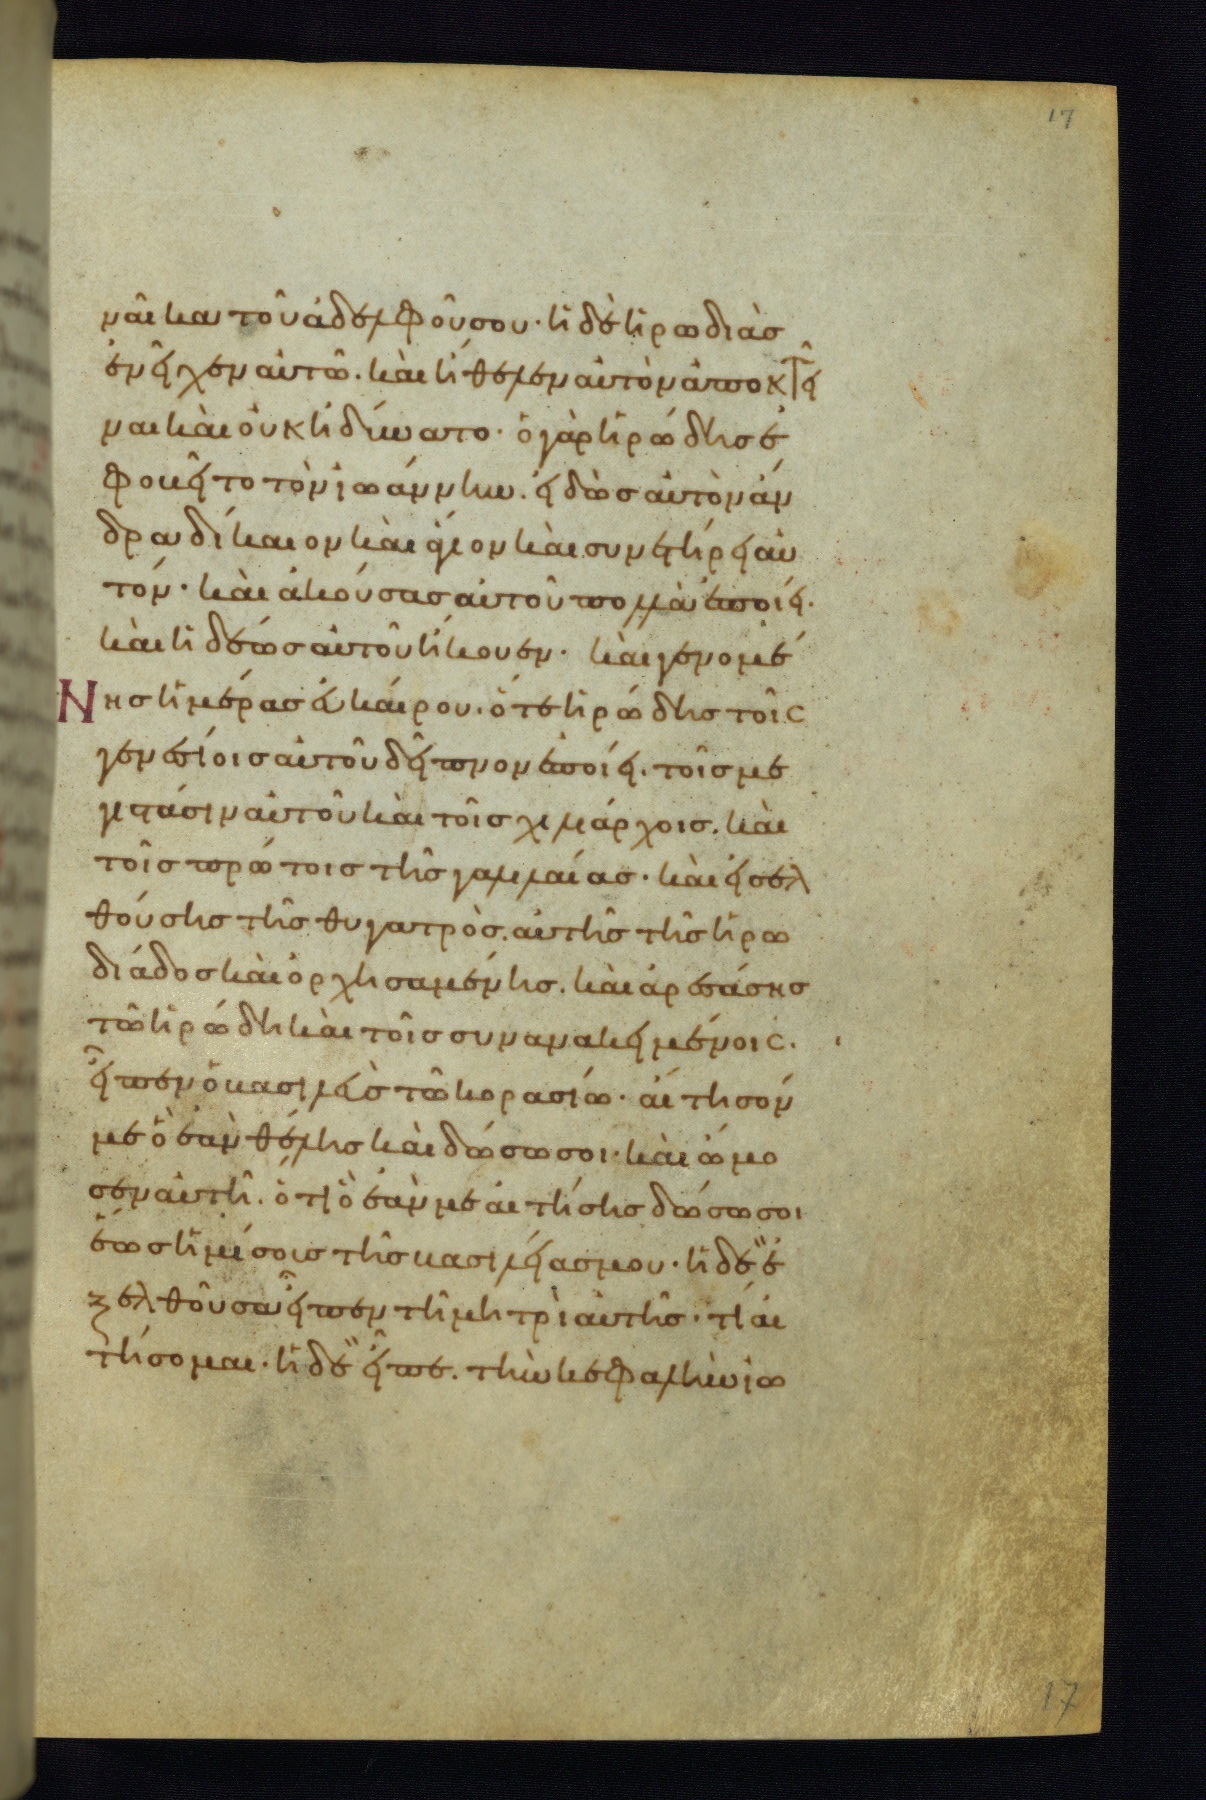 17
ναῖκα τοῦ ἀδελφοῦ σου· ἡ δὲ ἡρωδιὰς
ἐνεῖχεν αὐτῶ. καὶ ἤθελεν αὐτὸν ἀποκτεῖ
ναι καὶ οὐκ ἠδύνατο· ὁ γὰρ ἡρώδης ἐ
φοβεῖτο τὸν ἰωάννην. εἰδὼς αὐτὸν ἄν
δρα δίκαιον καὶ ἅγιον καὶ συνετήρει αὐ
τόν· καὶ ἀκούσας αὐτοῦ πολλὰ ἐποίει.
καὶ ἡδέως αὐτοῦ ἤκουεν· καὶ γενομέ
νης ἡμέρας εὐκαίρου. ὅτε ἡρώδης τοῖς
γενεσίοις αὐτοῦ δεῖπνον ἐποίει. τοῖς με
γιστάσιν αὐτοῦ καὶ τοῖς χιλιάρχοις. καὶ
τοῖς πρώτοις τῆς γαλιλαίας· καὶ εἰσελ
θούσης τῆς θυγατρὸς. αὐτῆς τῆς ἡρω
διάδος καὶ ὀρχησαμένης. καὶ ἀρεσάσης
τῶ ἡρώδη καὶ τοῖς συνανακειμένοις.
εἶπεν ὁ βασιλεὺς τῶ κορασίω· αἴτησόν
με ὃ ἐὰν θέλης καὶ δώσω σοι· καὶ ὤμο
σεν αὐτῆ. ὅτι ὃ ἐάν με αἰτήσης δώσω σοι
ἕως ἡμίσους τῆς βασιλείας μου· ἡ δὲ ἐ
ξελθοῦσα εἶπεν τῆ μητρὶ αὐτῆς· τί αἰ
τήσομαι· ἡ δὲ εἶπε. τὴν κεφαλὴν ἰω
17